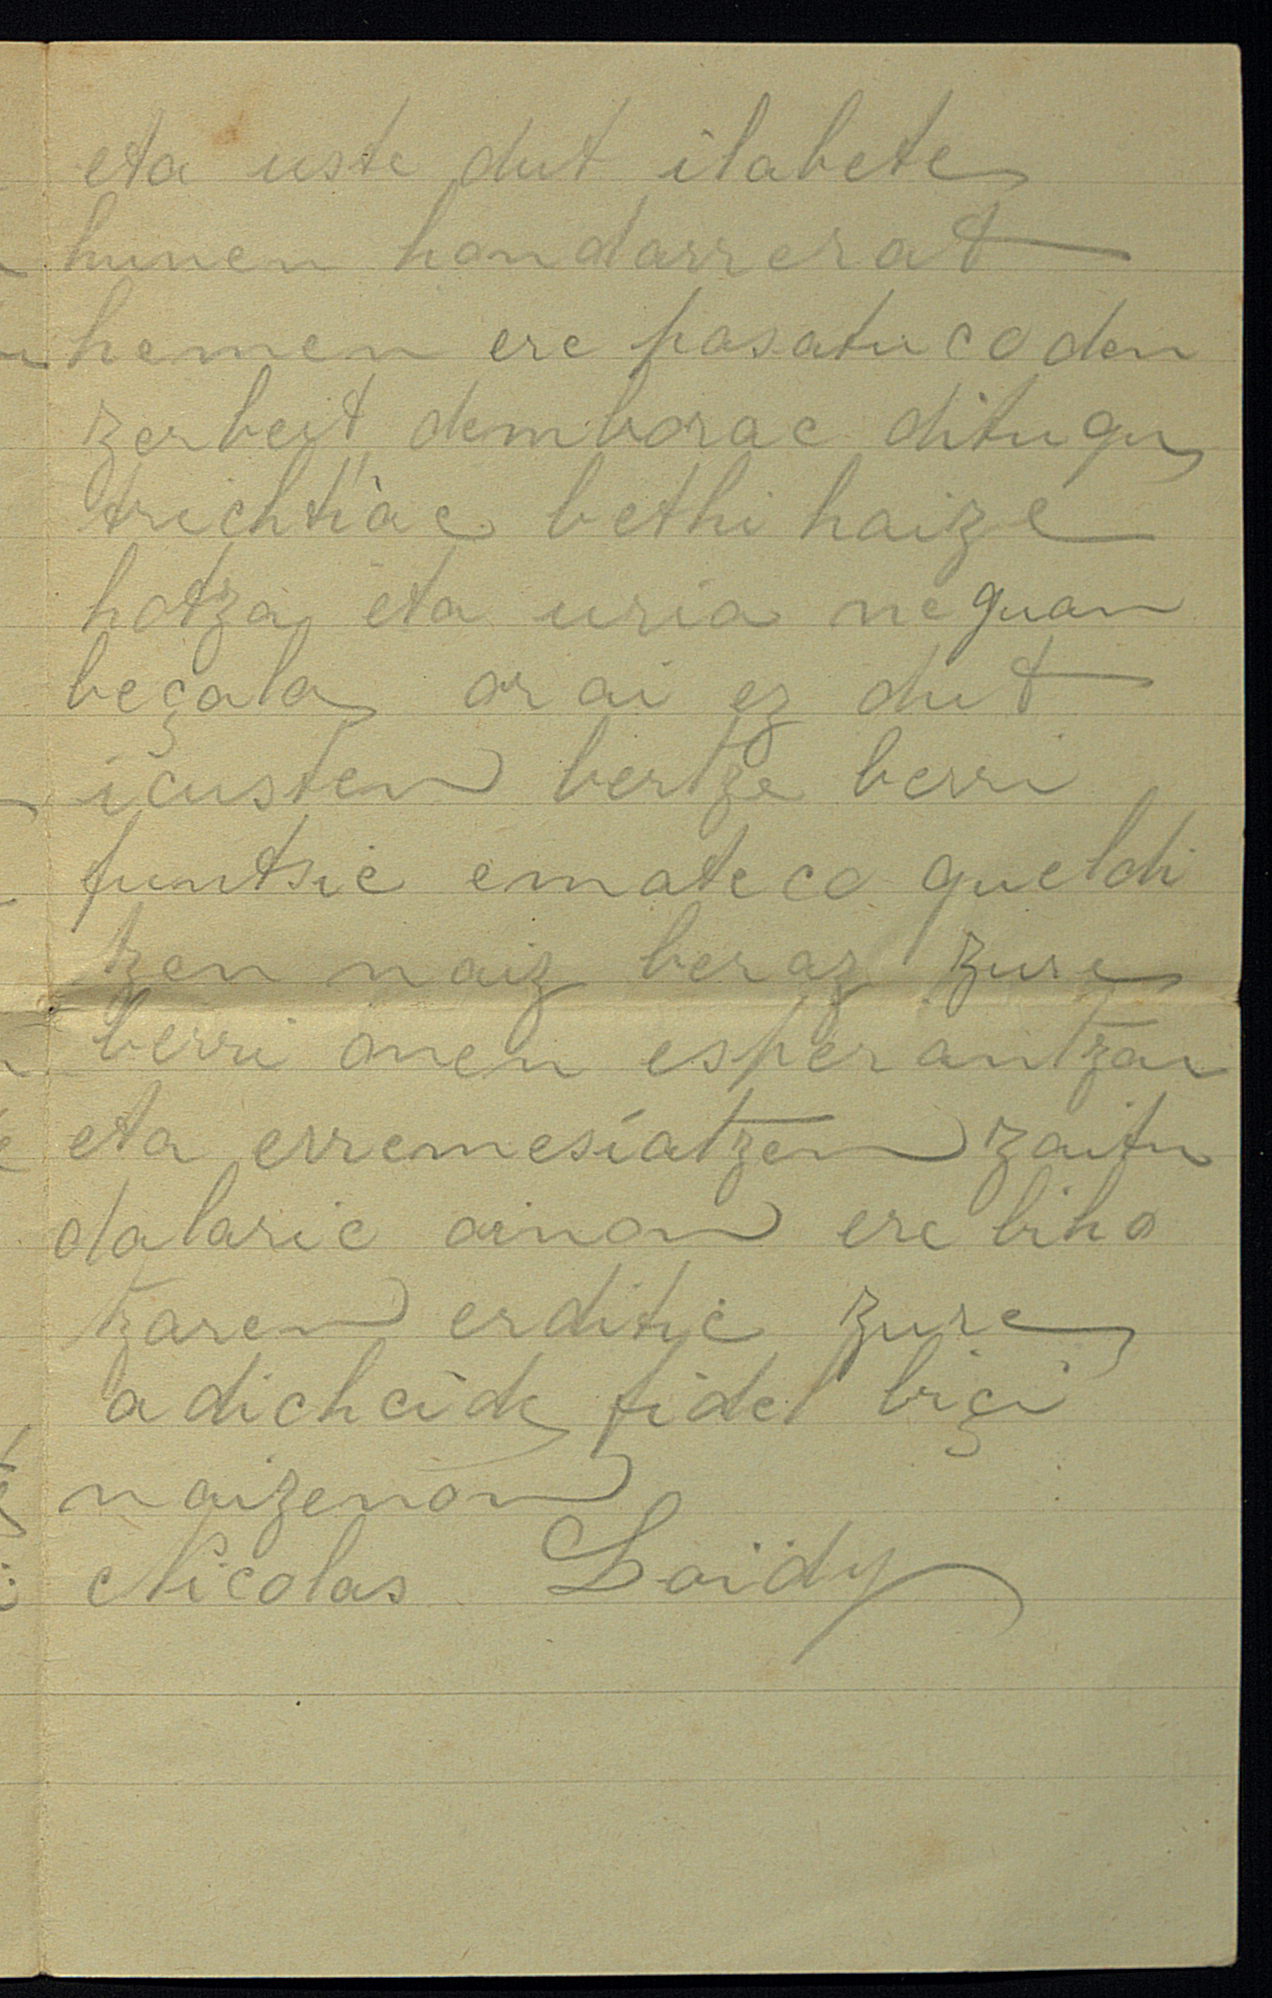 eta uste dut ilabete
hunen hondarrerat
hemen ere pasatuco den
zerbeit demborac ditugu
trichtiac bethi haize
hotza eta uria neguan
beçala orai ez dut
icusten bertze berri
funtsic emateco gueldi
tzen naiz beraz zure
berri onen esperantzan
eta erremesiatzen zaitu
dalaric ainon ere biho
tzaren erditic zure
adichcide fidel bici
naizenon
Nicolas Loidy